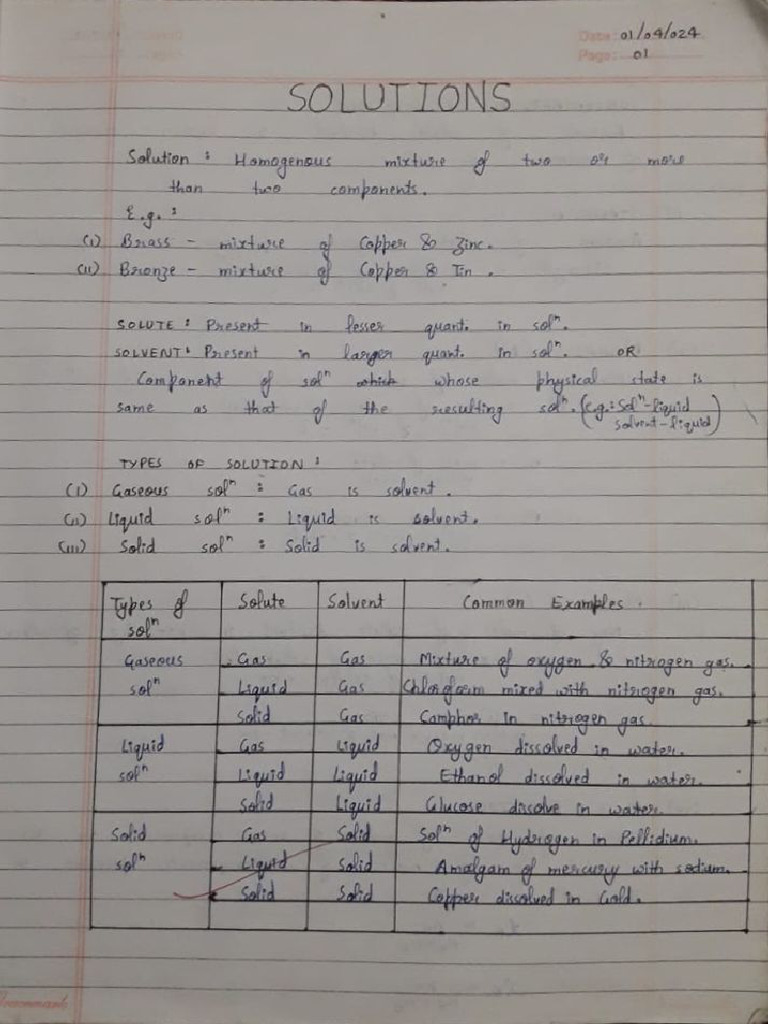 Date: 01/04/024
Page: 01
SOLUTIONS
Solution : Homogenous mixture of two or more
than two components.
E.g. :
(i) Brass - mixture of Copper & Zinc.
(ii) Bronze - mixture of Copper & Tin.
SOLUTE : Present in lesser quant. in solⁿ.
SOLVENT : Present in larger quant. in solⁿ. OR
Component of solⁿ which whose physical state is
same as that of the resulting solⁿ. (e.g.: Solⁿ-liquid
solvent-liquid)
TYPES OF SOLUTION :
(i) Gaseous solⁿ : Gas is solvent.
(ii) Liquid solⁿ : Liquid is solvent.
(iii) Solid solⁿ : Solid is solvent.
Types of Solute Solvent Common Examples.
solⁿ
Gaseous Gas Gas Mixture of oxygen & nitrogen gas.
solⁿ Liquid Gas Chloroform mixed with nitrogen gas.
Solid Gas Camphor in nitrogen gas
Liquid Gas Liquid Oxygen dissolved in water.
solⁿ Liquid Liquid Ethanol dissolved in water.
Solid Liquid Glucose dissolve in water.
Solid Gas Solid Solⁿ of Hydrogen in Pellidium.
solⁿ Liquid Solid Amalgam of mercury with sodium.
Solid Solid Copper dissolved in Gold.